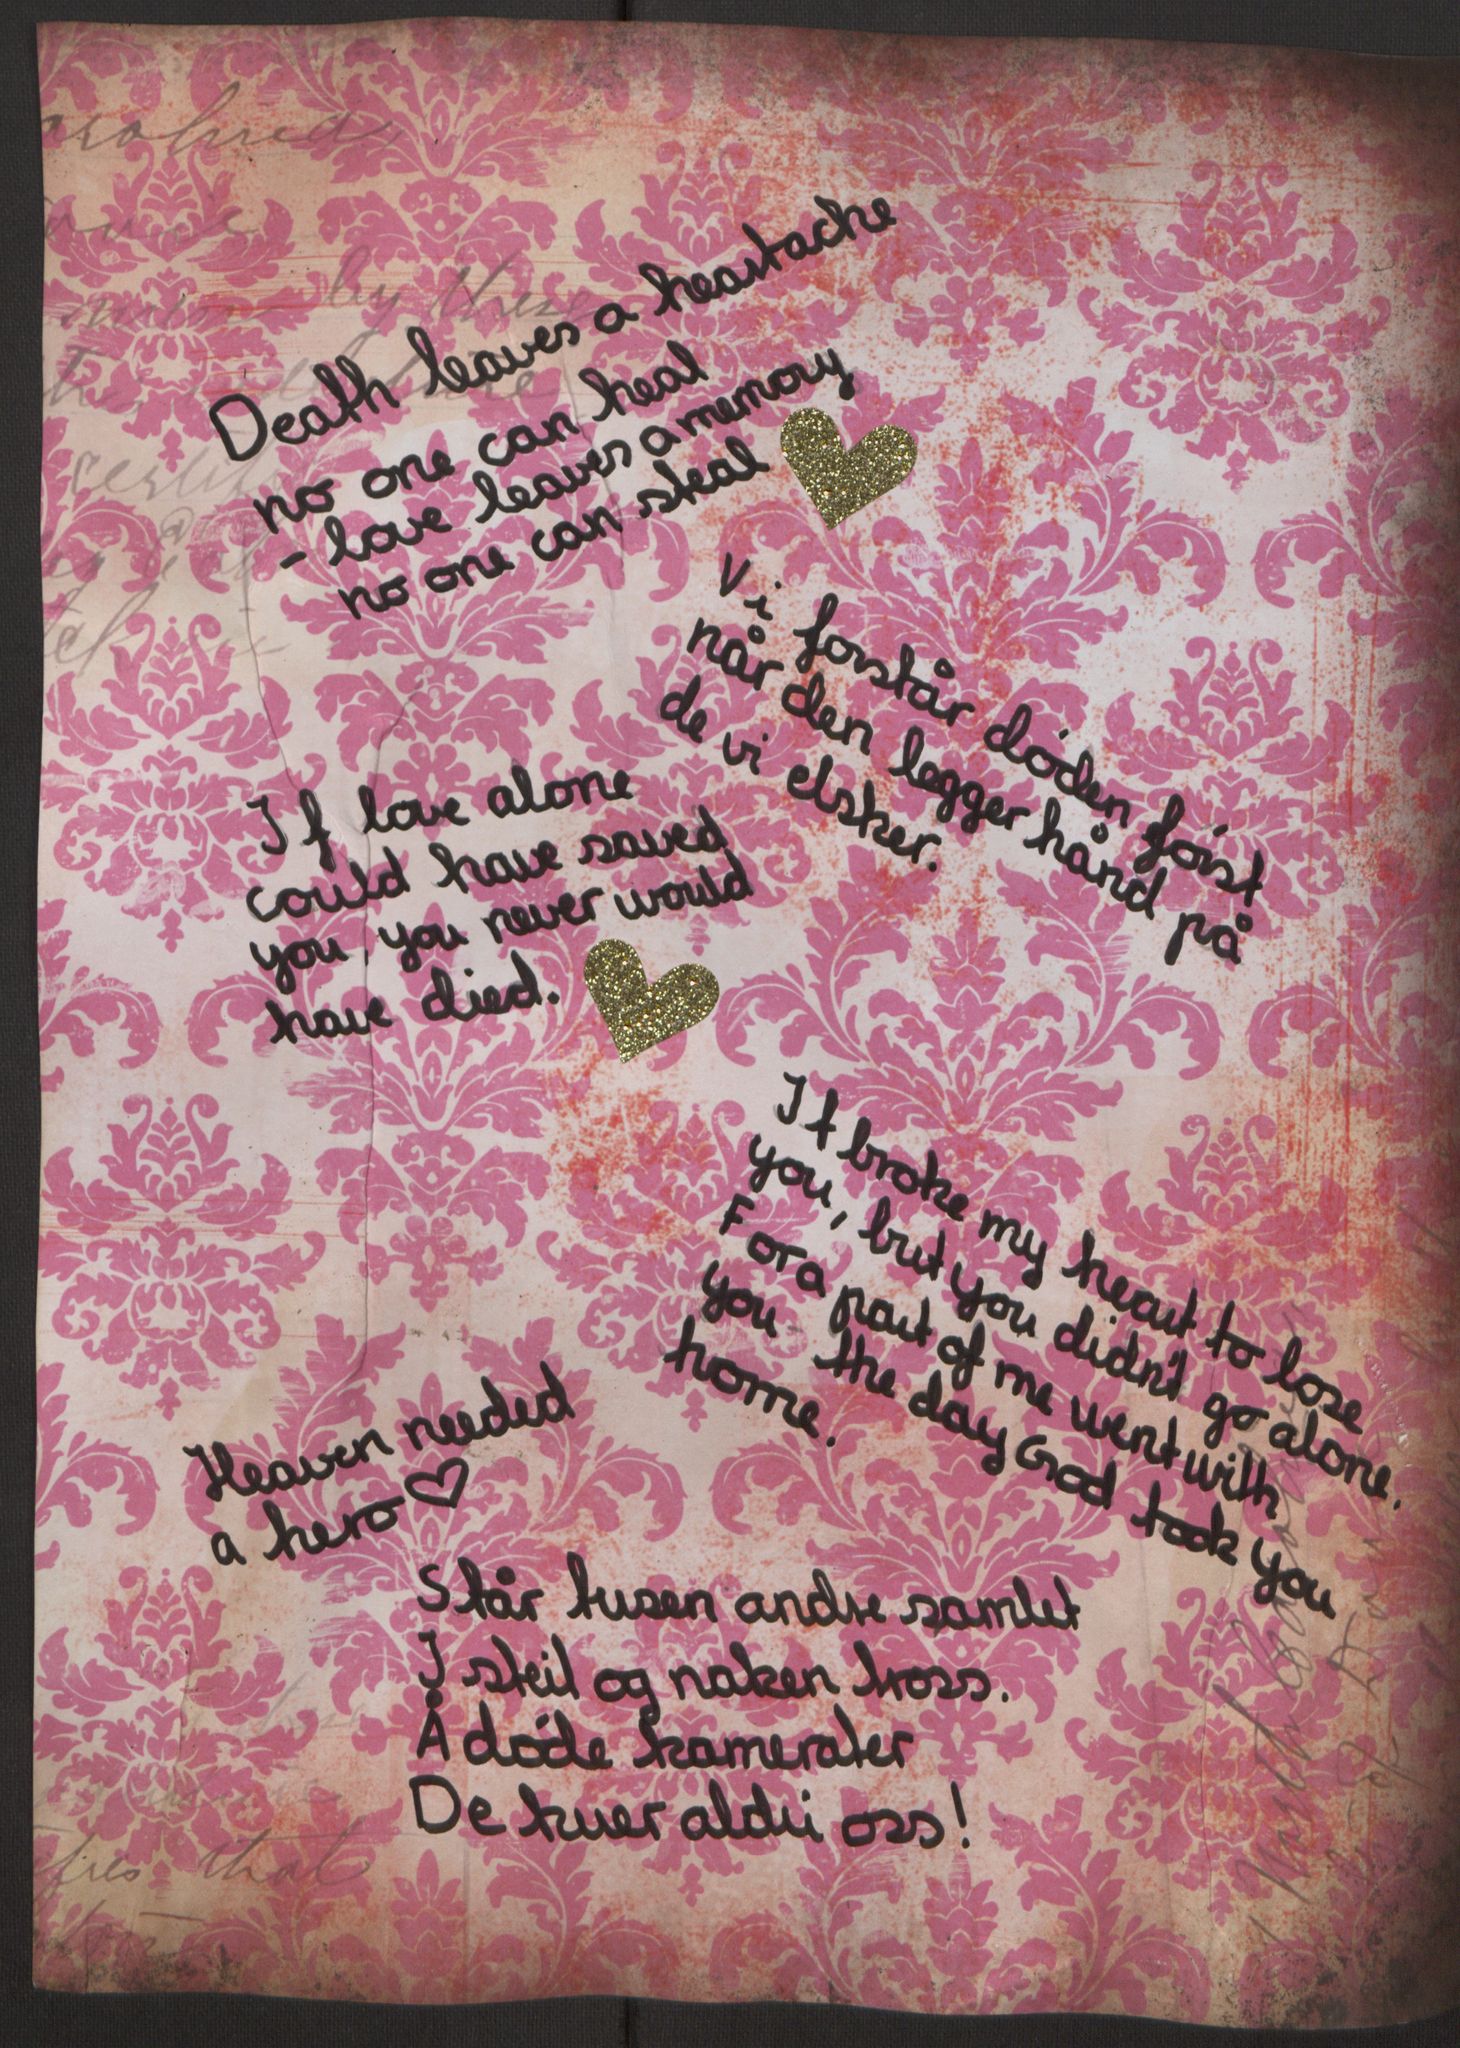 Death leaves a heartache
no one can heal
- love leaves a memory
no one can steal
Vi forstår døden først
når den legger hånd på
de vi elsker.
If love alone
could have saved
you, you never would
have died.
It broke my heart to lose
you, but you didn't go alone.
For a part of me went with
you the day God took you
home.
Heaven needed
a hero ♡
Står tusen andre samlet
I steil og naken tross.
Å døde kamerater
De kuer aldri oss!
by these
that